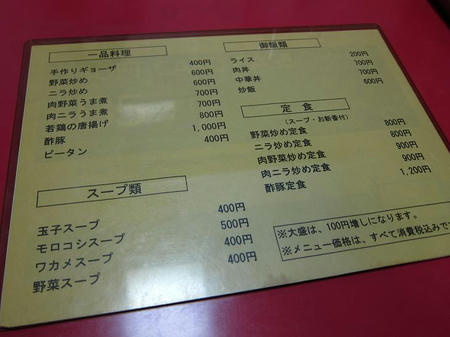 一品料理
手作りギョーザ 400円
野菜炒め 600円
ニラ炒め 600円
肉野菜うま煮 700円
肉ニラうま煮 700円
若鶏の唐揚げ 800円
酢豚 1,000円
ピータン 400円
スープ類
玉子スープ 400円
モロコシスープ 500円
ワカメスープ 400円
野菜スープ 400円
御飯類
ライス 200円
肉丼 700円
中華丼 700円
炒飯 600円
定食
(スープ・お新香付)
野菜炒め定食 800円
ニラ炒め定食 800円
肉野菜炒め定食 900円
肉ニラ炒め定食 900円
酢豚定食 1,200円
※大盛は、100円増しになります。
※メニュー価格は、すべて消費税込みで